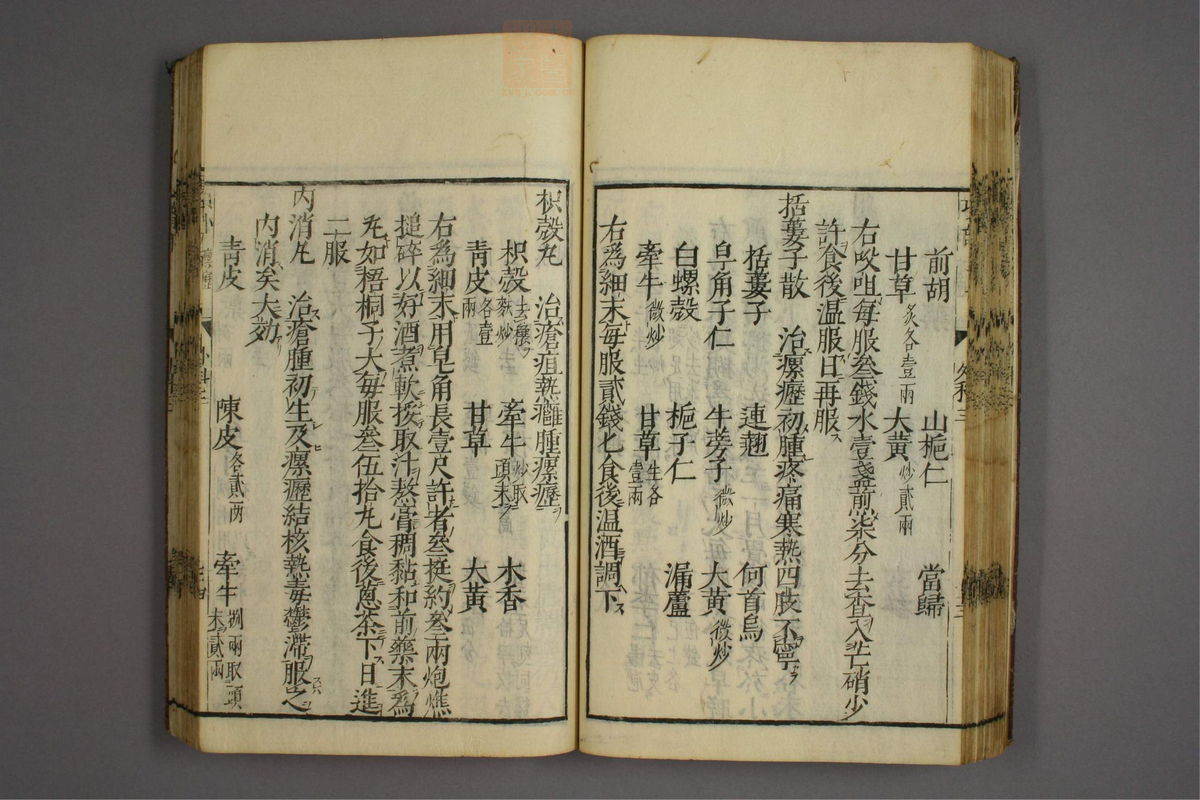 前胡 山梔仁 當歸
甘草炙各壹兩 大黃炒貳兩
右㕮咀每服叄錢水壹盞煎柒分去查入芒硝少
許食後温服日再服
括蔞子散 治瘰癧初腫疼痛寒熱四肢不寧
括蔞子 連翹 何首烏
皁角子仁 牛蒡子微炒 大黃微炒
白螺殼 梔子仁 漏蘆
牽牛微炒 甘草生各壹兩
右爲細末每服貳錢匕食後温酒調下
枳殼丸 治瘡疽熱癰腫瘰癧
枳殼去穰麩炒 牽牛炒取頭末 木香
靑皮各壹兩 甘草 大黃
右爲細末用皂角長壹尺許者叄挺約叄兩炮燋
搥碎以好酒煮軟挼取汁熬膏稠黏和前藥末爲
丸如梧桐子大每服叄伍拾丸食後葱茶下日進
二服
內消丸 治瘡腫初生及瘰癧結核熱毒鬱滯服之
內消矣大効
靑皮 陳皮各貳兩 牽牛捌兩取頭末貳兩